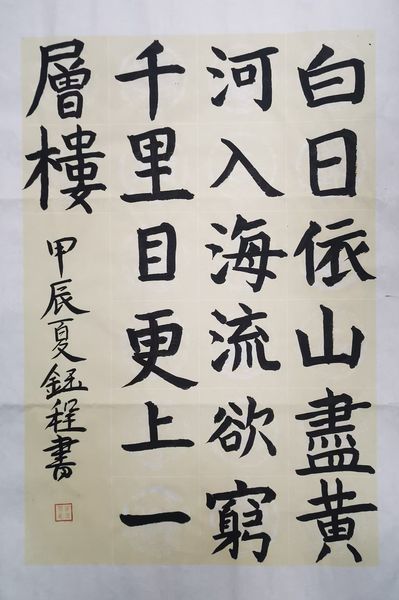 白日依山盡黃
河入海流欲窮
千里目更上一
層樓
甲辰夏鈺程書